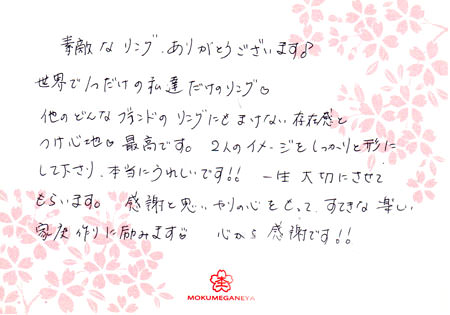 素敵なリング、ありがとうございます♪
世界で1つだけの私達だけのリング。
他のどんなブランドのリングにもまけない存在感と
つけ心地。最高です。2人のイメージをしっかりと形に
して下さり、本当にうれしいです!! 一生大切にさせて
もらいます。感謝と思いやりの心をもって、すてきな楽しい
家庭作りに励みます。心から感謝です!!
MOKUMEGANEYA